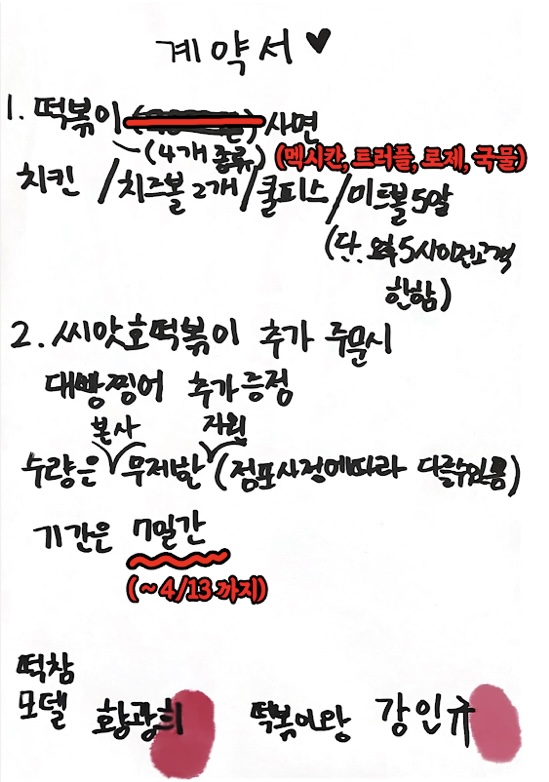 계약서 ♥
1. 떡볶이 사면
(4개 종류) (멕시칸, 트러플, 로제, 국물)
치킨 / 치즈볼 2개 / 쿨피스 / 미트볼 5알
(단. 오후 5시 이전 고객
한함)
2. 씨앗호떡볶이 추가 주문시
대빵찡어 추가증정
본사 지원
수량은 무제한 (점포사정에따라 다를수있음)
기간은 7일간
(~4/13 까지)
떡참
모델 황광희 떡볶이왕 강인규